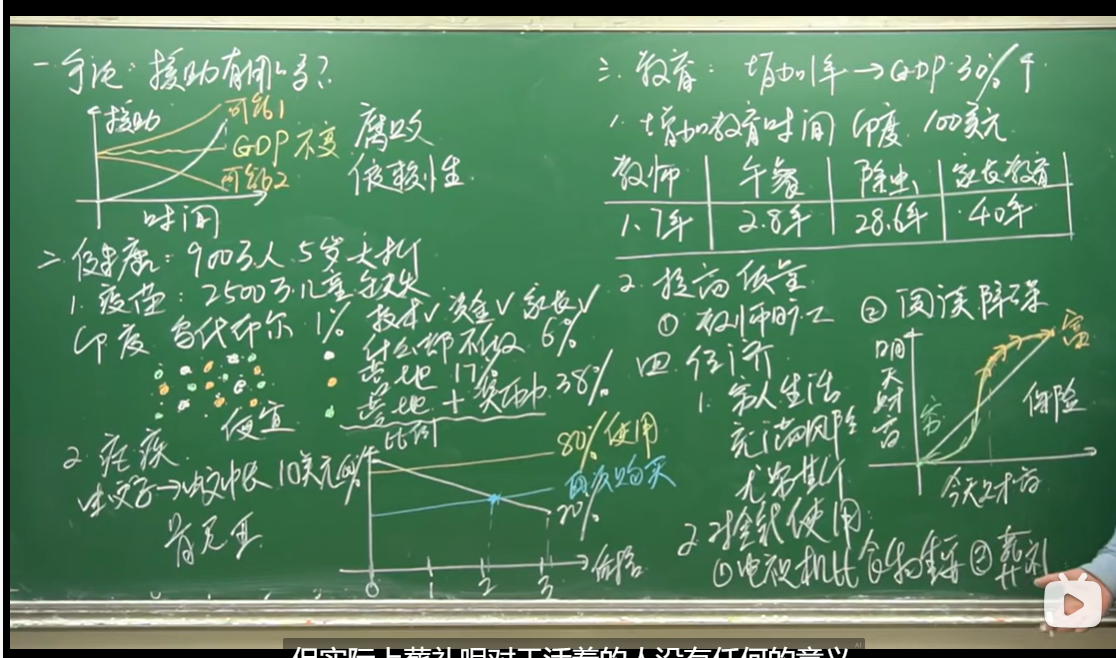 一 引论: 援助有用吗?
援助
可能1
GDP不变
可能2
时间
腐败
依赖性
二. 健康: 900万人 5岁夭折
1. 疫苗: 2500万儿童缺失
印度 乌代布尔 1% 技术√ 资金√ 家长√
什么都不做 6%
营地 17%
营地 + 奖励 38%
便宜
2. 疟疾
蚊子→蚊帐 10美元
肯尼亚
比例
80% 使用
再次购买
20%
0 1 2 3 价格
三. 教育: 增加1年→GDP 30%↑
1. 增加教育时间 印度 100美元
教师 午餐 除虫 家长教育
1.7年 2.8年 28.6年 40年
2. 提高质量
① 教师旷工 ② 阅读障碍
四. 经济
1. 穷人生活
充满风险
尤努斯
2. 对金钱使用
① 电视机比食物重要 ② 葬礼
明天财富
富
穷
保险
今天财富
但实际上葬礼呢对于活着的人没有任何的意义